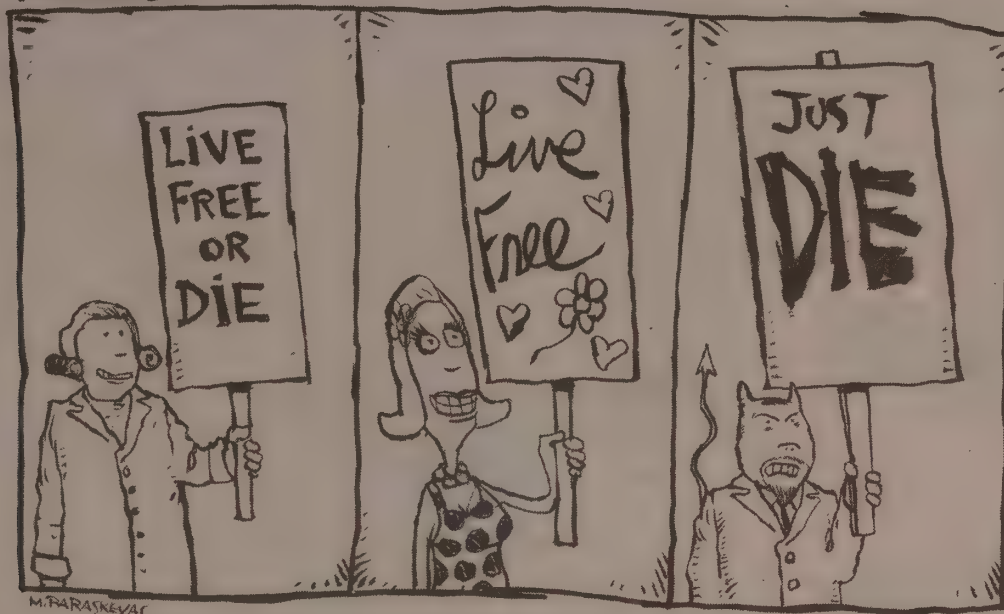 LIVE
FREE
OR
DIE
Live
Free
JUST
DIE
M. PARASKEVAS